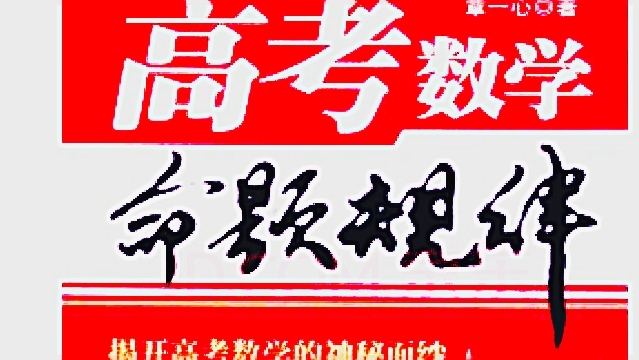 章一心◎著
高考数学
命题规律
揭开高考数学的神秘面纱